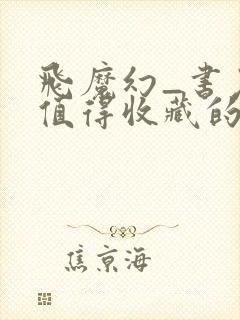 飛魔幻_書
值得收藏的
焦京海